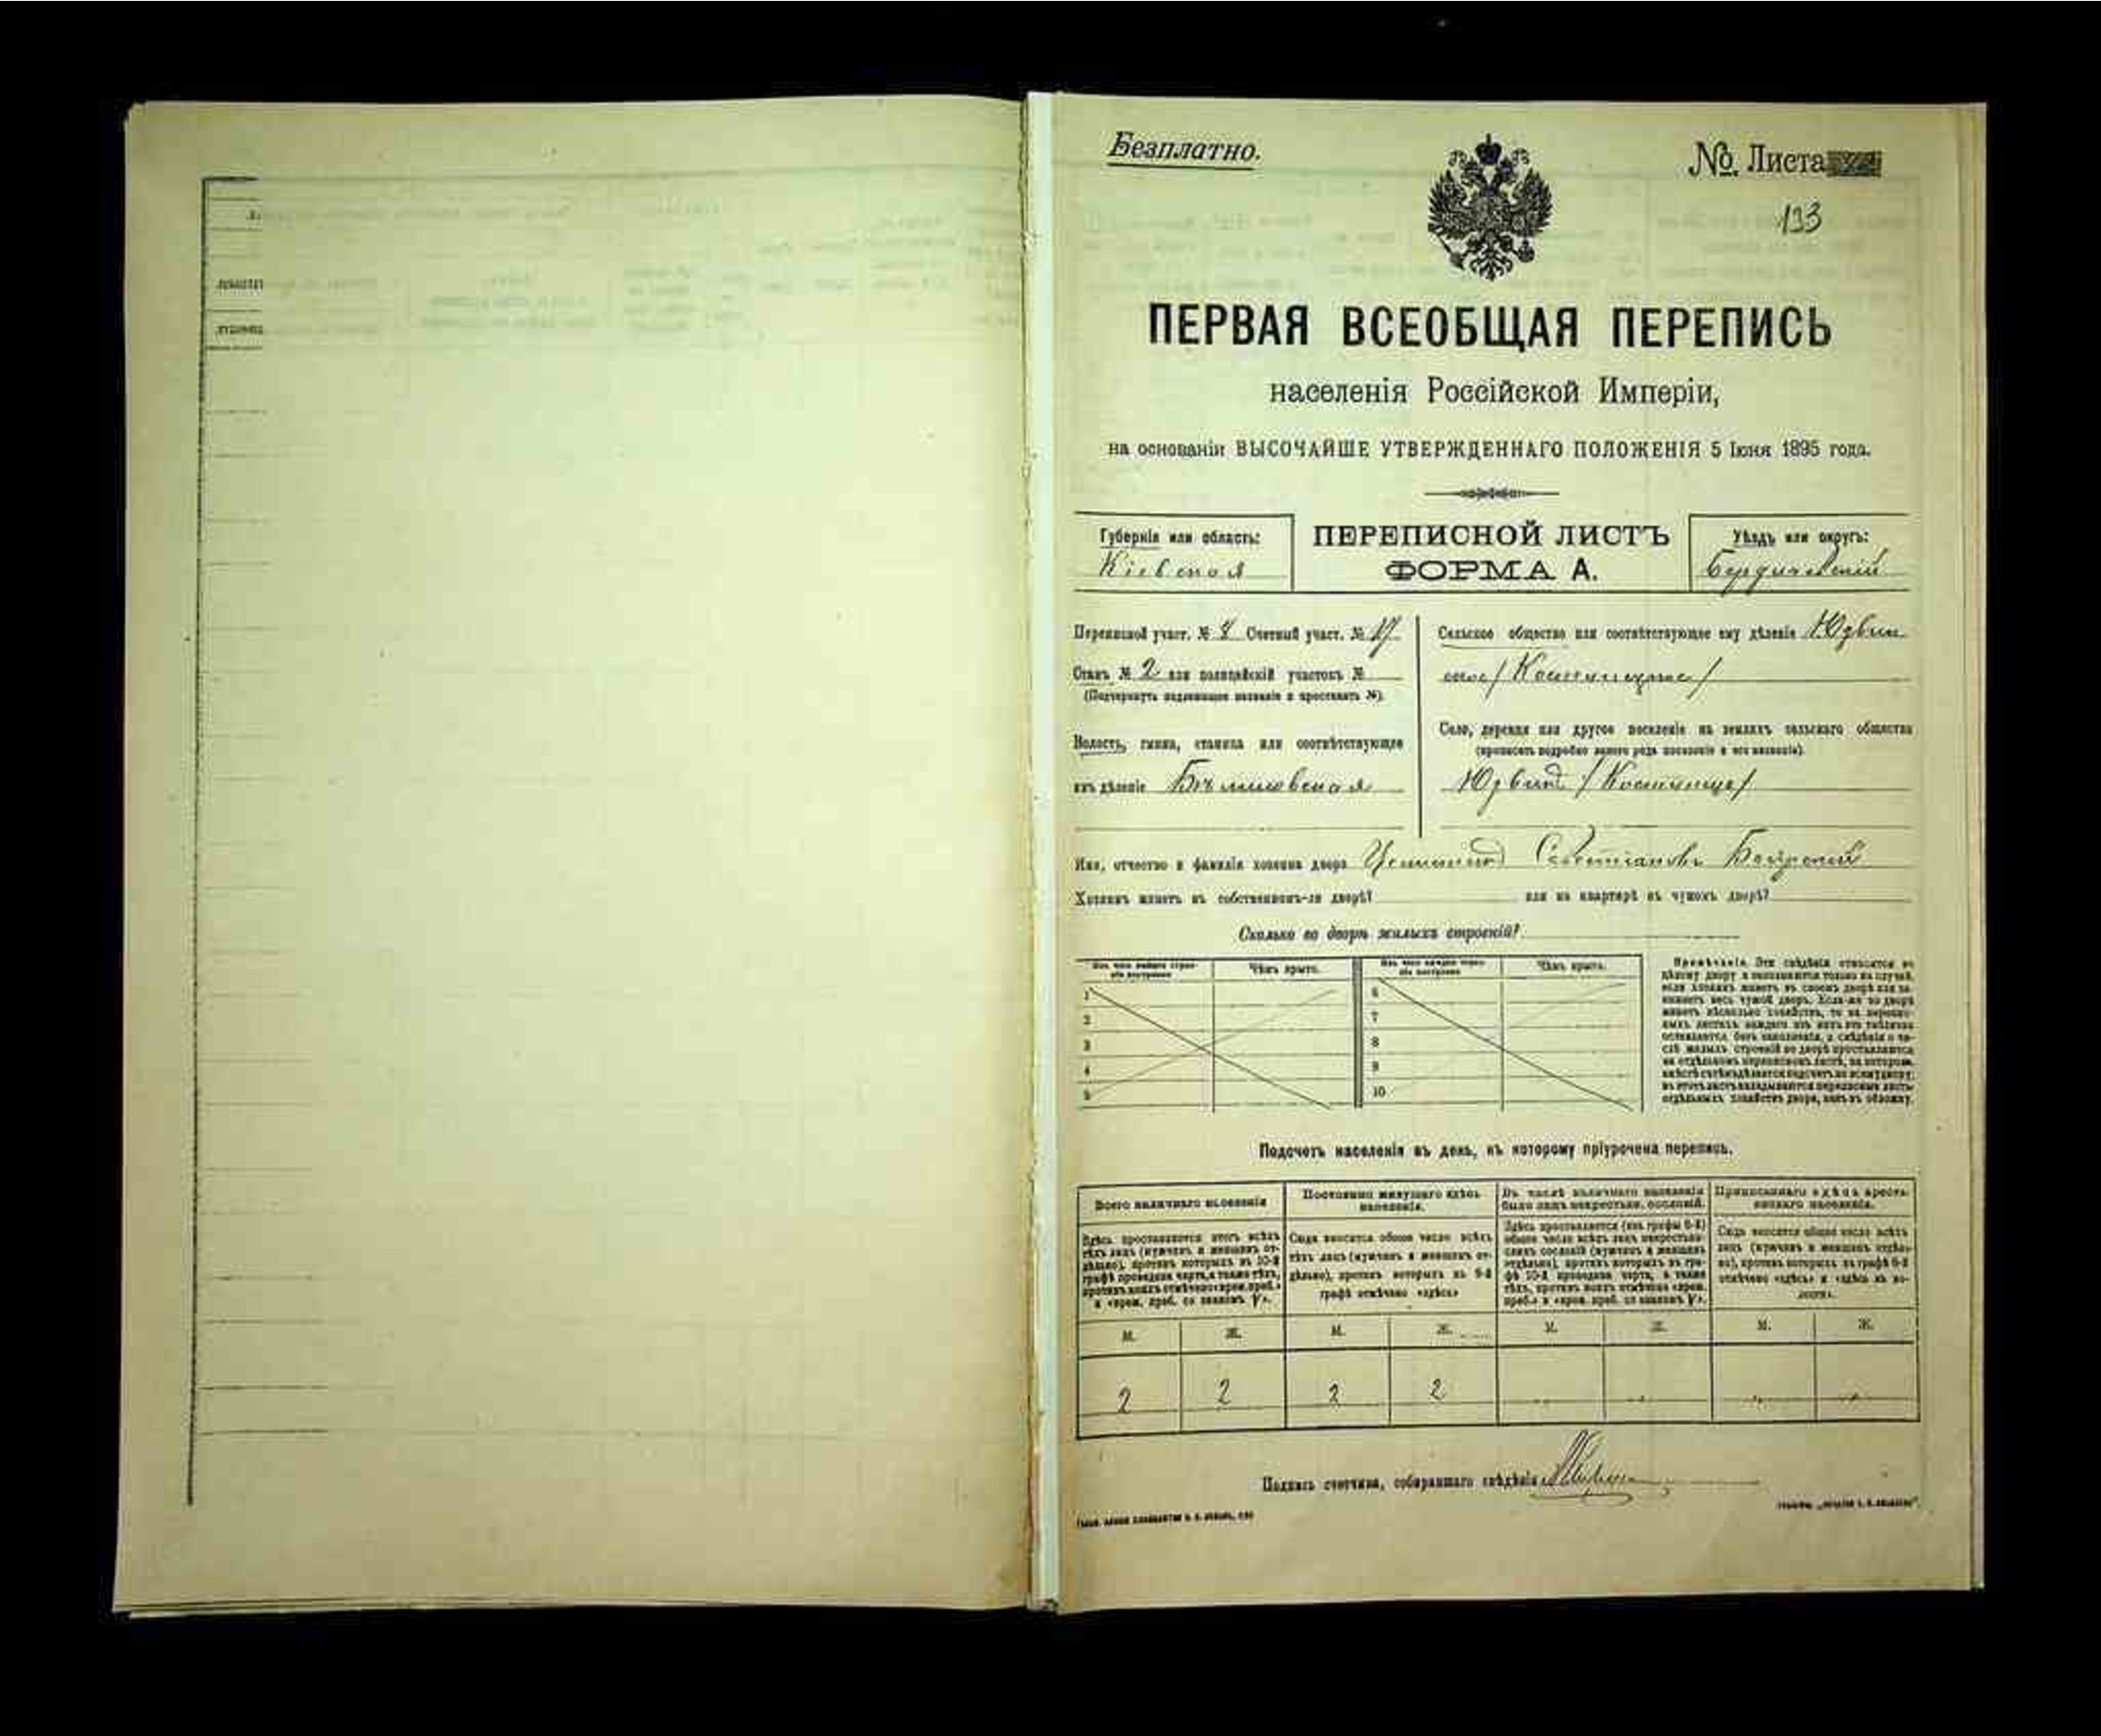 Безплатно.
№ Листа
133
ПЕРВАЯ ВСЕОБЩАЯ ПЕРЕПИСЬ
населенія Россійской Имперіи,
на основаніи ВЫСОЧАЙШЕ УТВЕРЖДЕННАГО ПОЛОЖЕНІЯ 5 Іюня 1895 года.
Губернія или область:
Кіевская
ПЕРЕПИСНОЙ ЛИСТЪ
ФОРМА А.
Уѣздъ или округъ:
Бердичевскій
Переписной участ. № Счетный участ. № 17
Станъ № 2 или полицейскій участокъ №
(Подчеркнуть надлежащее названіе и проставить №).
Волость, гмина, станица или соотвѣтствующее
имъ дѣленіе
Сельское общество или соотвѣтствующее ему дѣленіе
Село, деревня или другое поселеніе на земляхъ сельскаго общества
(прописать подробно какого рода поселеніе и его названіе).
Имя, отчество и фамилія хозяина двора
Хозяинъ живетъ въ собственномъ-ли дворѣ? или на квартирѣ въ чужомъ дворѣ?
Сколько во дворѣ жилыхъ строеній?
Изъ чего каждое строе-
ніе построено
Чѣмъ крыто.
Изъ чего каждое строе-
ніе построено
Чѣмъ крыто.
1
2
3
4
5
6
7
8
9
10
Примѣчаніе. Эти свѣдѣнія относятся ко
цѣлому двору и заполняются только въ случаѣ,
если хозяинъ живетъ въ своемъ дворѣ или за-
нимаетъ весь чужой дворъ. Если-же во дворѣ
живетъ нѣсколько хозяйствъ, то на перепис-
ныхъ листахъ каждаго изъ нихъ эта табличка
оставляется безъ заполненія, а свѣдѣнія о чи-
слѣ жилыхъ строеній во дворѣ проставляются
на отдѣльномъ переписномъ листѣ, на которомъ
вмѣстѣ съ тѣмъ дѣлается подсчетъ по всему двору;
въ этотъ листъ вкладываются переписные листы
отдѣльныхъ хозяйствъ двора, какъ въ обложку.
Подсчетъ населенія въ день, къ которому пріурочена перепись.
Всего наличнаго населенія
Здѣсь проставляется итогъ всѣхъ
тѣхъ лицъ (мужчинъ и женщинъ от-
дѣльно), противъ которыхъ въ 10-й
графѣ проведена черта, а также тѣхъ,
противъ коихъ отмѣчено «врем. преб.»
и «врем. преб. со знакомъ V».
Постоянно живущаго здѣсь
населенія.
Сюда вносится общее число всѣхъ
тѣхъ лицъ (мужчинъ и женщинъ от-
дѣльно), противъ которыхъ въ 9-й
графѣ отмѣчено «здѣсь»
Въ числѣ наличнаго населенія
было лицъ некрестьян. сословій.
Здѣсь проставляется (изъ графы 6-й)
общее число всѣхъ лицъ некрестьян-
скихъ сословій (мужчинъ и женщинъ
отдѣльно), противъ которыхъ въ гра-
фѣ 10-й проведена черта, а также
тѣхъ, противъ коихъ отмѣчено «врем.
преб.» и «врем. преб. со знакомъ V».
Приписаннаго здѣсь кресть-
янскаго населенія.
Сюда вносится общее число всѣхъ
лицъ (мужчинъ и женщинъ отдѣль-
но), противъ которыхъ въ графѣ 8-й
отмѣчено «здѣсь» и «здѣсь въ во-
лости».
М. Ж. М. Ж. М. Ж. М. Ж.
2 2 2 2
Подпись счетчика, собиравшаго свѣдѣнія